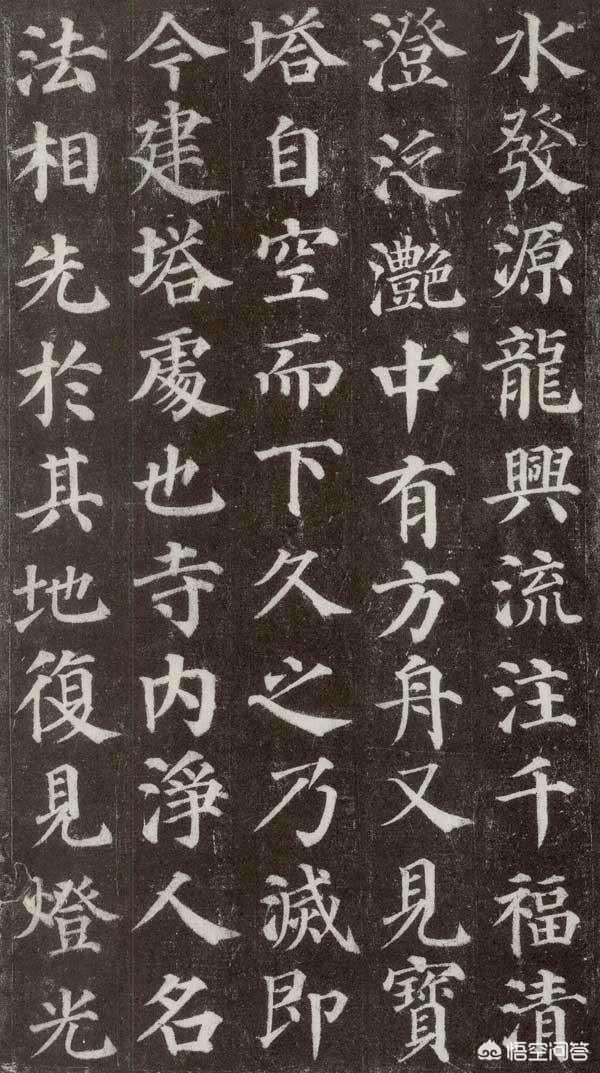 水發源龍興流注千福清
澄泛灧中有方舟又見寶
塔自空而下久之乃滅即
今建塔處也寺内淨人名
法相先於其地復見燈光
悟空问答